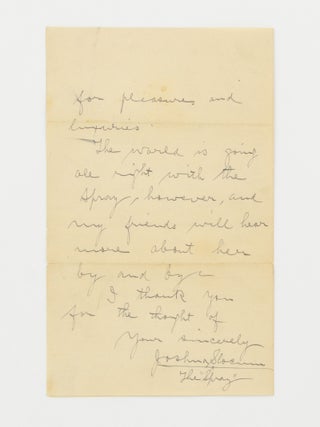 for pleasures and
luxuries.
The world is going
all right with the
Spray, however, and
my friends will hear
more about her
by and bye
I thank you
for the thought of
Your sincerely
Joshua Slocum
The "Spray"